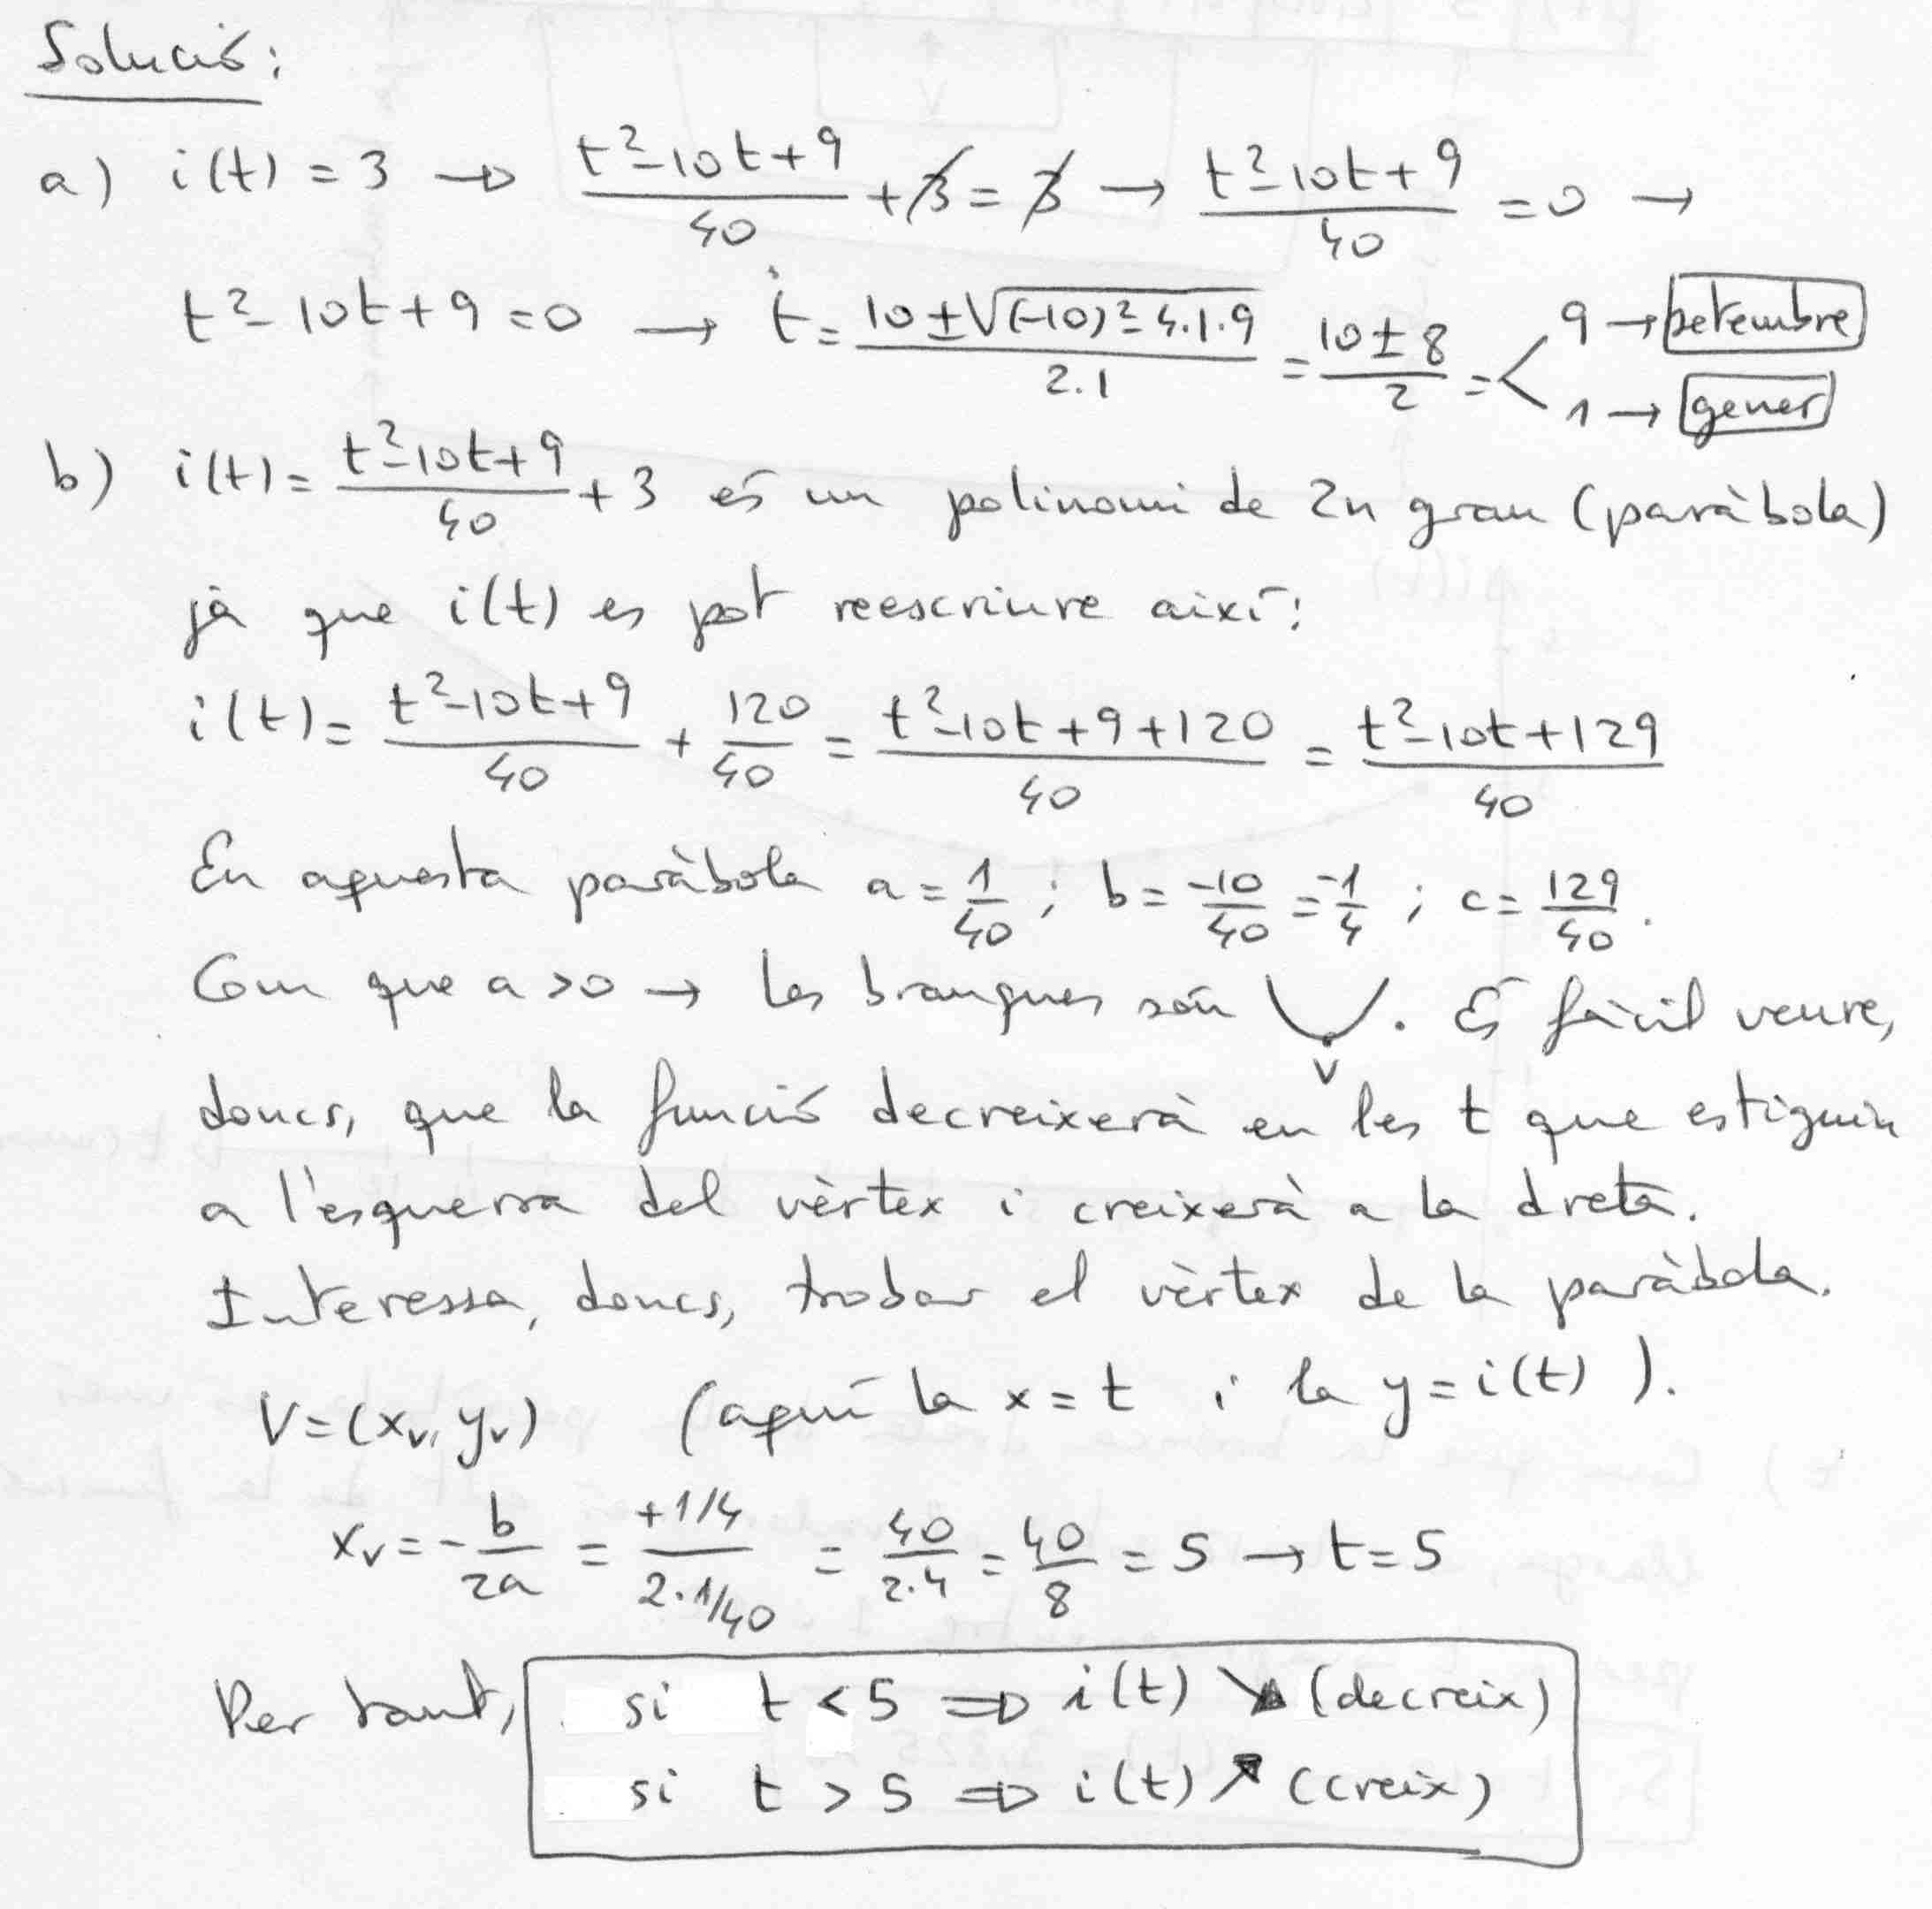 Solució:
a) i(t) = 3 → (t²-10t+9)/40 + 3 = 3 → (t²-10t+9)/40 = 0 →
t²-10t+9 = 0 → t = (10±√((-10)²-4·1·9))/(2·1) = (10±8)/2 = < 9 → setembre
1 → gener
b) i(t) = (t²-10t+9)/40 + 3 és un polinomi de 2n grau (paràbola)
jà que i(t) es pot reescriure així:
i(t) = (t²-10t+9)/40 + 120/40 = (t²-10t+9+120)/40 = (t²-10t+129)/40
En aquesta paràbola a = 1/40 ; b = -10/40 = -1/4 ; c = 129/40 .
Com que a > 0 → les branques són ∪. És fàcil veure,
v
doncs, que la funció decreixerà en les t que estiguin
a l'esquerra del vèrtex i creixerà a la dreta.
Interessa, doncs, trobar el vèrtex de la paràbola.
V = (xᵥ, yᵥ) (aquí la x = t i la y = i(t) ).
xᵥ = -b/2a = (+1/4)/(2·1/40) = 40/(2·4) = 40/8 = 5 → t = 5
Per tant, si t < 5 ⇒ i(t) ↘ (decreix)
si t > 5 ⇒ i(t) ↗ (creix)